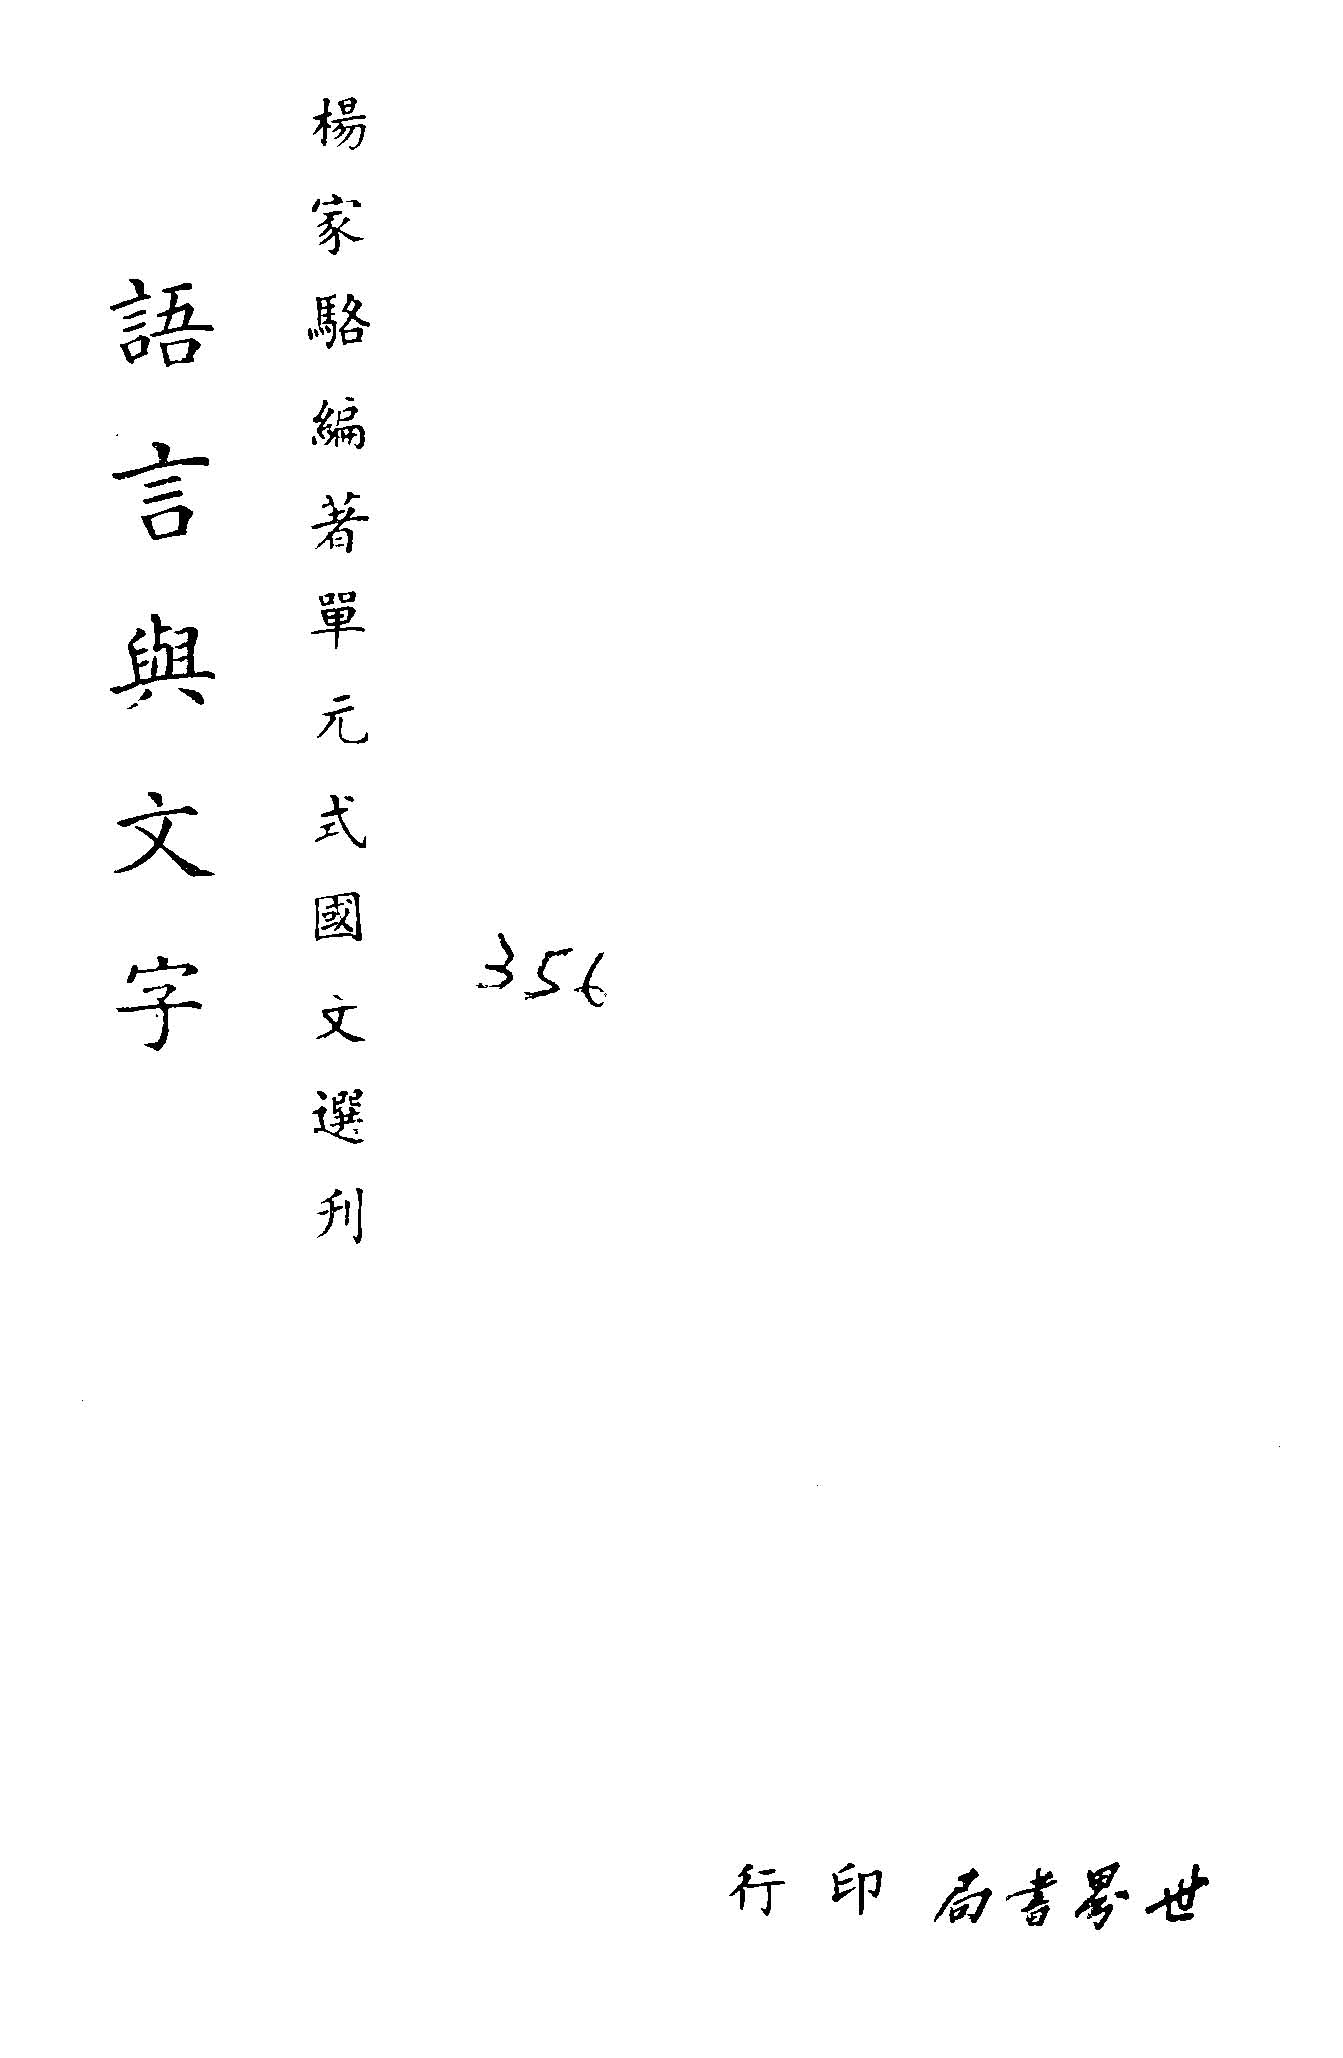 楊家駱編著單元式國文選刋
語言與文字
356
世界書局印行